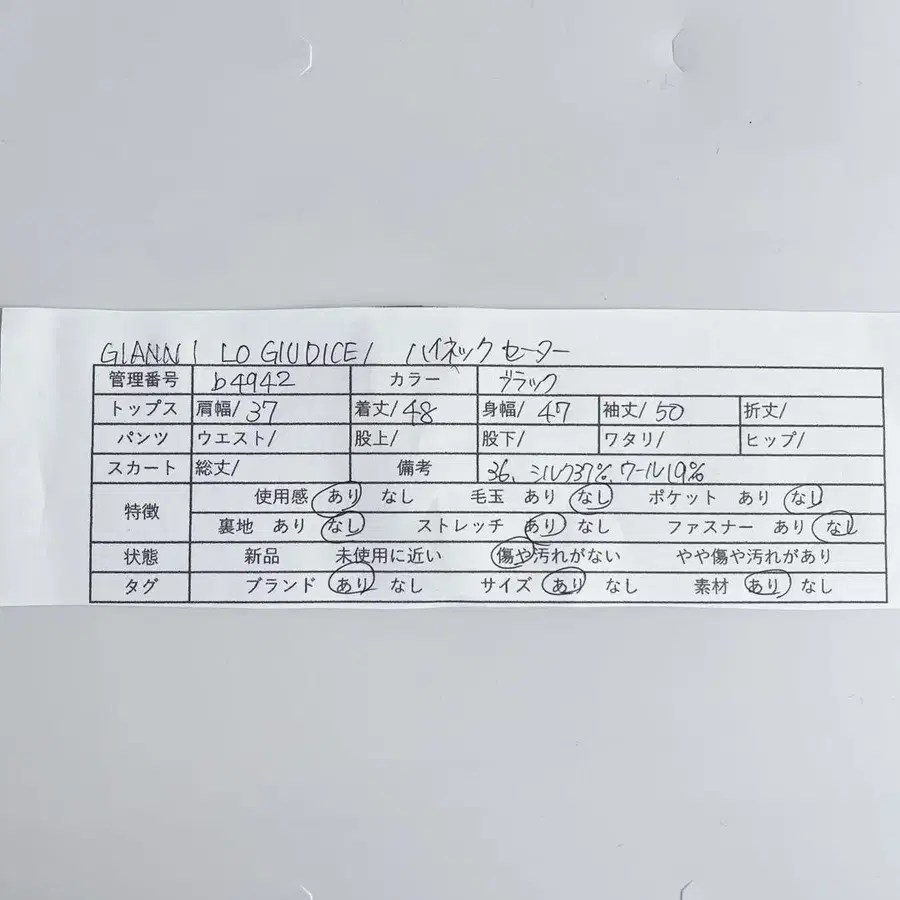 GIANNI LO GIUDICE/ ハイネックセーター
管理番号 b4942 カラー ブラック
トップス 肩幅/37 着丈/48 身幅/47 袖丈/50 折丈/
パンツ ウエスト/ 股上/ 股下/ ワタリ/ ヒップ/
スカート 総丈/ 備考 36、シルク37%、ウール19%
特徴 使用感 あり なし 毛玉 あり なし ポケット あり なし
裏地 あり なし ストレッチ あり なし ファスナー あり なし
状態 新品 未使用に近い 傷や汚れがない やや傷や汚れがあり
タグ ブランド あり なし サイズ あり なし 素材 あり なし